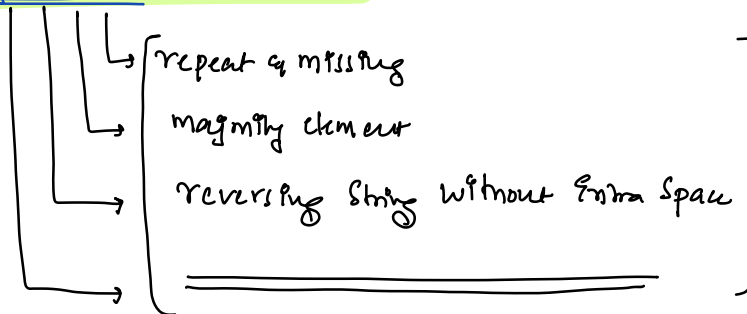 repeat & missing
majority element
reversing String without Extra Space